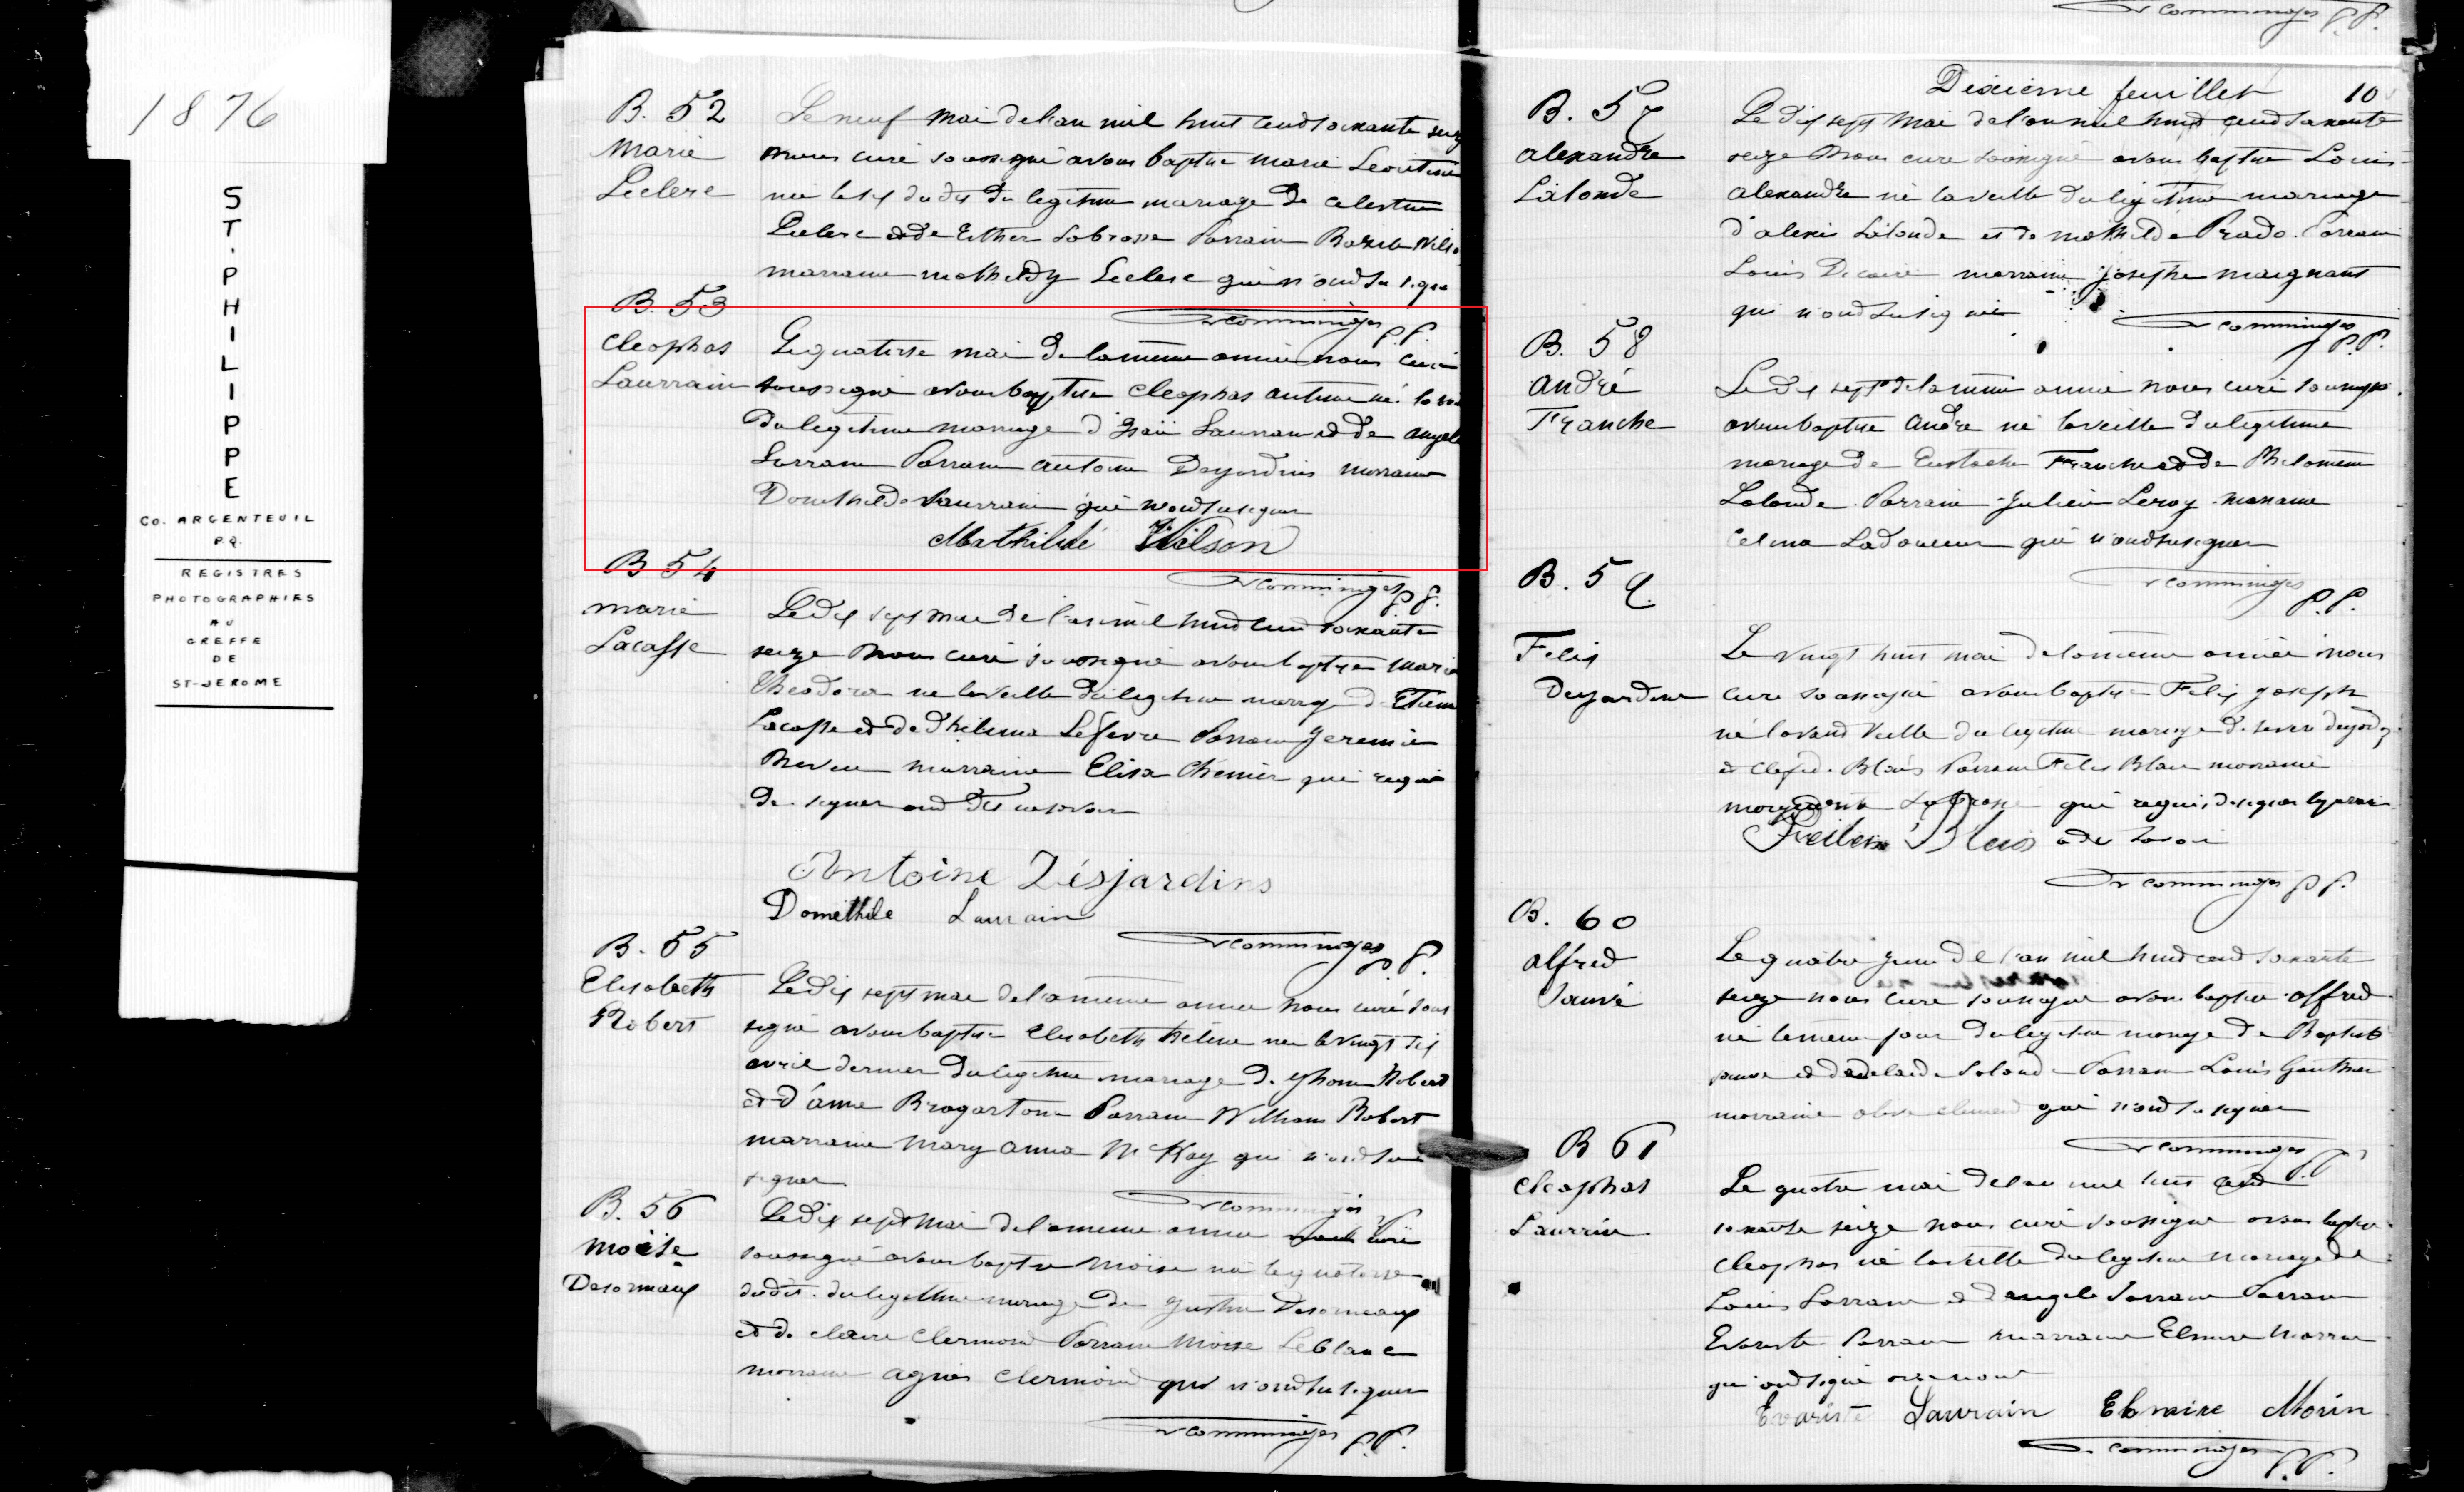 Comminges P.P.
1876
ST. PHILIPPE
CO. ARGENTEUIL
P.Q.
REGISTRES
PHOTOGRAPHIES
AU
GREFFE
DE
ST-JEROME
B. 52
Marie
Leclerc
Le neuf mai de l'an mil huit cend soixante seize
nous curé soussigné avons baptisé Marie
née le six dudit du légitime mariage de Celestin
Leclerc et de Esther Labrosse Parrain
marraine Leclerc qui n'ond su signer
Comminges P.P.
B. 53
Cleophas
Laurrain
Le quatorse mai de la même année nous curé
soussigné avons baptisé Cleophas Antoine né la
Du legitime mariage d'Isaïe Laurrain et de Angele
Lorrain Parrain Antoine Desjardins marraine
Domethilde Laurrain qui n'ond su signer
Mathilde Wilson
Comminges P.P.
B 54
Marie
Lacasse
Le dix sept mai de l'an mil huid cend soixante
seize Nous curé soussigné avons baptisé Marie
Theodora née la veille du legitime mariage d'Etienne
Lacasse et de Lefevre Parrain Jeremie
marraine Elisa Chenier qui requis
de signer ond dit ne savoir
Antoine Désjardins
Domethilde Laurrain
Comminges P.P.
B. 55
Elisabeth
Robert
Le dix sept mai de la même année nous curé sous
signé avons baptisé Elisabeth Hélène née le vingt dix
avril dernier du legitime mariage de Robert
et d'Anna Parrain William Robert
marraine Mary Anna McKay qui n'ond su
signer
Comminges P.P.
B. 56
Moïse
Desormaux
Le dix sept mai de la même année nous curé
soussigné avons baptisé Moïse né le quatorse
dudit du legitime mariage de Justin Desormeaux
et de Claire Clermond Parrain Moïse Leblanc
marraine Agnes Clermond qui n'ond su signer
Comminges P.P.
Dixième feuillet 10
B. 57
Alexandre
Lalonde
Le dix sept mai de l'an mil huid cend soixante
seize Nous curé soussigné avons baptisé Louis
Alexandre né la veille du légitime mariage
d'Alexis Lalonde et de Mathilde Prado. Parrain
Louis Decaire marraine Josephe Maignant
qui n'ond su signer
Comminges P.P.
B. 58
André
Franche
Le dix sept de la même année nous curé soussigné
avons baptisé André né la veille du legitime
mariage de Eustache Franche et de Philomène
Lalonde. Parrain Julien Leroy. marraine
Celina Ladouceur qui n'ond su signer
Comminges
P.P.
B. 59
Felix
Desjardins
Le vingt huit mai de la même année nous
curé soussigné avons baptisé Felix Joseph
né l'avand veille du legitime mariage de
et Blais Parrain Felix Blais marraine
qui requis de signer
Blais
Comminges P.P.
B. 60
Alfred
Sauvé
Le quatre juin de l'an mil huid cend soixante
seize nous curé soussigné avons baptisé Alfred
né le même jour du legitime mariage de Baptiste
Sauvé et d'Adelaide Lalonde Parrain Louis Gauthier
marraine Clement qui n'ond su signer
Comminges
P.P.
B 61
Cleophas
Laurrin
Le quatre mai de l'an mil huit cend
soixante seize nous curé soussigné avons baptisé
Cleophas né la veille du legitime mariage de
Louis Lorrain et d'Angele Lorrain Parrain
Evariste Lorrain marraine Morin
qui ond signé avec nous
Evariste Laurain Elmire Morin
Comminges
P.P.